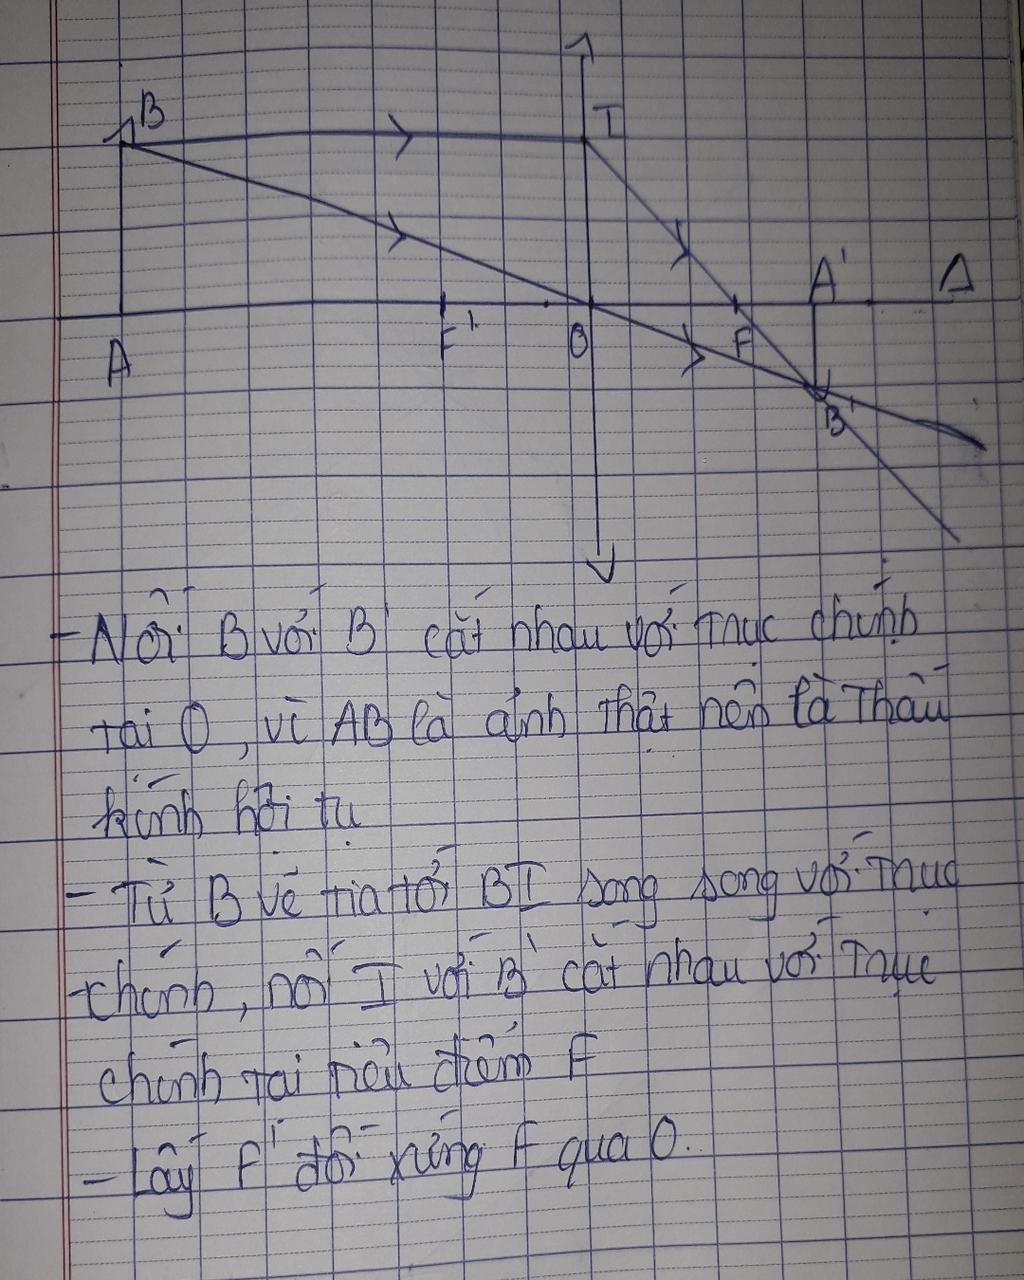 B
I
A'
Δ
F'
O
F
A
B'
- Nối B với B' cắt nhau với trục chính
tại O, vì AB là ảnh thật nên là thấu
kính hội tụ
- Từ B vẽ tia tới BI song song với trục
chính, nối I với B' cắt nhau với trục
chính tại tiêu điểm F
- Lấy F' đối xứng F qua O.